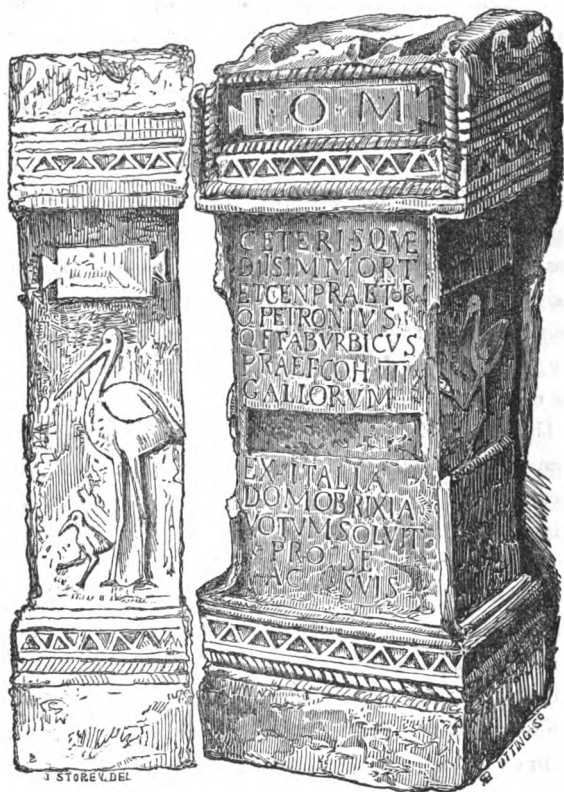 I·O·M
CETERISQVE
DIISIMMORT
ETGENPRAETOR
Q PETRONIVS
Q F FABVRBICVS
PRAEFCOH IIII
GALLORVM
EX ITALIA
DOMOBRIXIA
VOTVMSOLVIT
PRO SE
AC SVIS
J STOREY. DEL
UTTING. SC